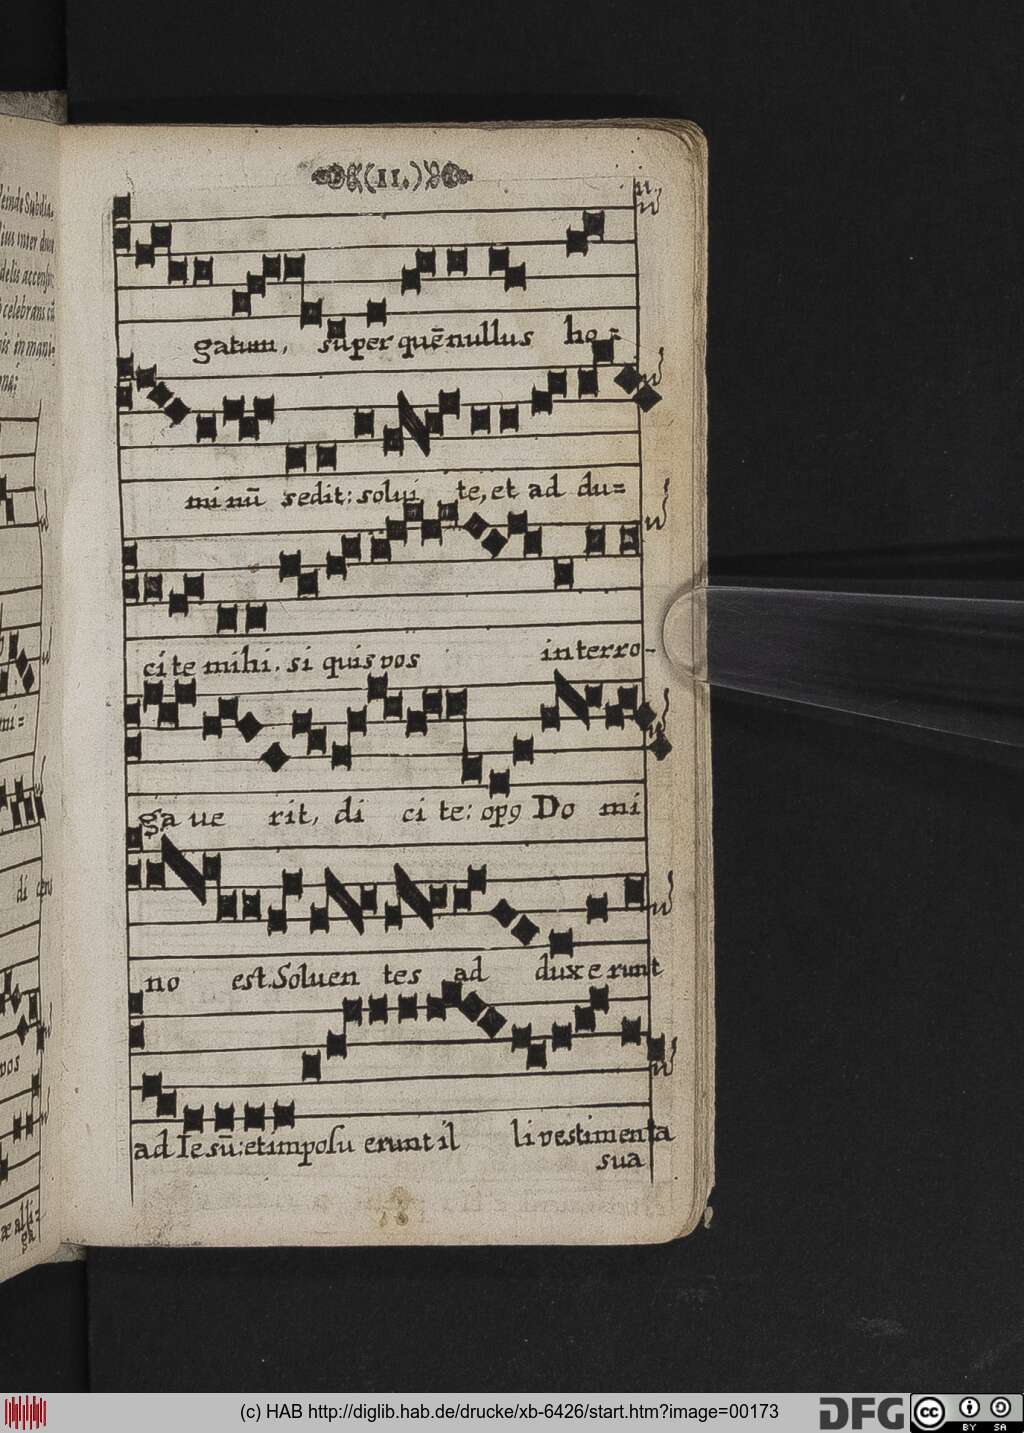 (II.)
gatum, super quē nullus ho=
mi nū sedit: solui te, et ad du=
ci te mihi. si quis vos interro-
ga ue rit, di ci te: opꝰ Do mi
no est. Soluen tes ad duxe runt
ad Ie sū: et imposu erunt il li vestimenta
sua
(c) HAB http://diglib.hab.de/drucke/xb-6426/start.htm?image=00173
DFG
cc
BY SA